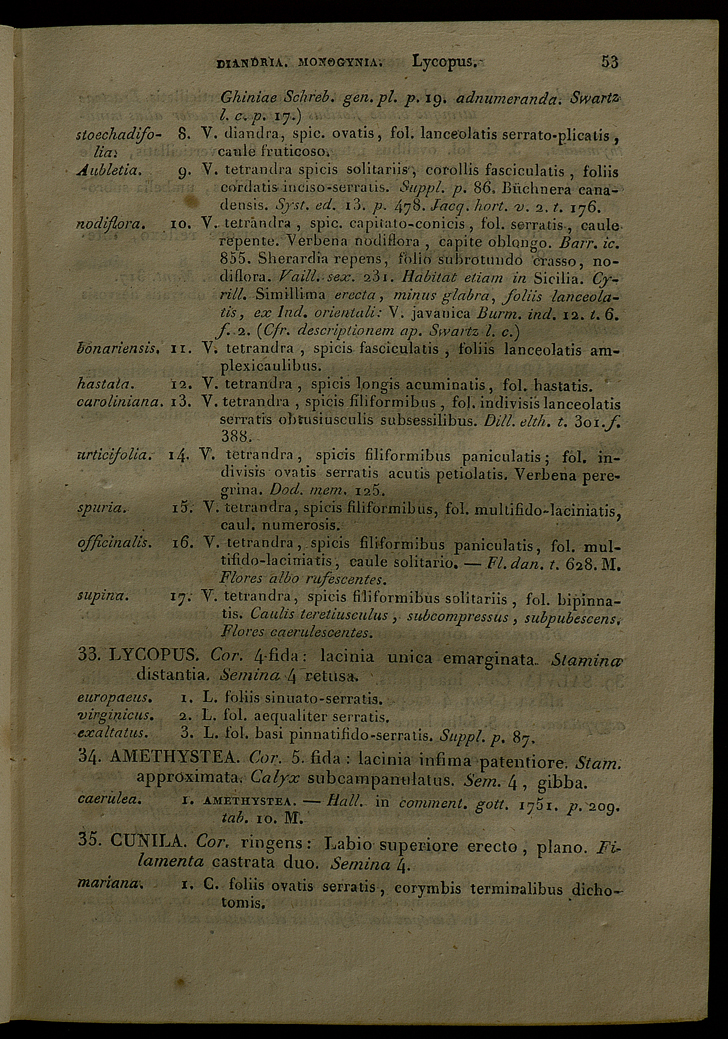 DIANDRIA. MONOGYNIA. Lycopus. 53
Ghiniae Schreb. gen. pl. p. 19. adnumeranda. Swartz
l. c. p. 17.)
stoechadifo- 8. V. diandra, spic. ovatis, fol. lanceolatis serrato-plicatis,
lia: caule fruticoso.
Aubletia. 9. V. tetrandra spicis solitariis, corollis fasciculatis, foliis
cordatis inciso-serratis. Suppl. p. 86. Büchnera cana-
densis. Syst. ed. 13. p. 478. Jacq. hort. v. 2. t. 176.
nodiflora. 10. V. tetrandra, spic. capitato-conicis, fol. serratis, caule
repente. Verbena nodiflora, capite oblongo. Barr. ic.
855. Sherardia repens, folio subrotundo crasso, no-
diflora. Vaill. sex. 231. Habitat etiam in Sicilia. Cy-
rill. Simillima erecta, minus glabra, foliis lanceola-
tis, ex Ind. orientali: V. javanica Burm. ind. 12. t. 6.
f. 2. (Cfr. descriptionem ap. Swartz l. c.)
bonariensis. 11. V. tetrandra, spicis fasciculatis, foliis lanceolatis am-
plexicaulibus.
hastata. 12. V. tetrandra, spicis longis acuminatis, fol. hastatis.
caroliniana. 13. V. tetrandra, spicis filiformibus, fol. indivisis lanceolatis
serratis obtusiusculis subsessilibus. Dill. elth. t. 301. f.
388.
urticifolia. 14. V. tetrandra, spicis filiformibus paniculatis; fol. in-
divisis ovatis serratis acutis petiolatis. Verbena pere-
grina. Dod. mem. 125.
spuria. 15. V. tetrandra, spicis filiformibus, fol. multifido-laciniatis,
caul. numerosis.
officinalis. 16. V. tetrandra, spicis filiformibus paniculatis, fol. mul-
tifido-laciniatis, caule solitario. — Fl. dan. t. 628. M.
Flores albo rufescentes.
supina. 17. V. tetrandra, spicis filiformibus solitariis, fol. bipinna-
tis. Caulis teretiusculus, subcompressus, subpubescens.
Flores caerulescentes.
33. LYCOPUS. Cor. 4-fida: lacinia unica emarginata. Stamina
distantia. Semina 4 retusa.
europaeus. 1. L. foliis sinuato-serratis.
virginicus. 2. L. fol. aequaliter serratis.
exaltatus. 3. L. fol. basi pinnatifido-serratis. Suppl. p. 87.
34. AMETHYSTEA. Cor. 5. fida: lacinia infima patentiore. Stam.
approximata. Calyx subcampanulatus. Sem. 4, gibba.
caerulea. 1. AMETHYSTEA. — Hall. in comment. gott. 1751. p. 209.
tab. 10. M.
35. CUNILA. Cor. ringens: Labio superiore erecto, plano. Fi-
lamenta castrata duo. Semina 4.
mariana. 1. C. foliis ovatis serratis, corymbis terminalibus dicho-
tomis.